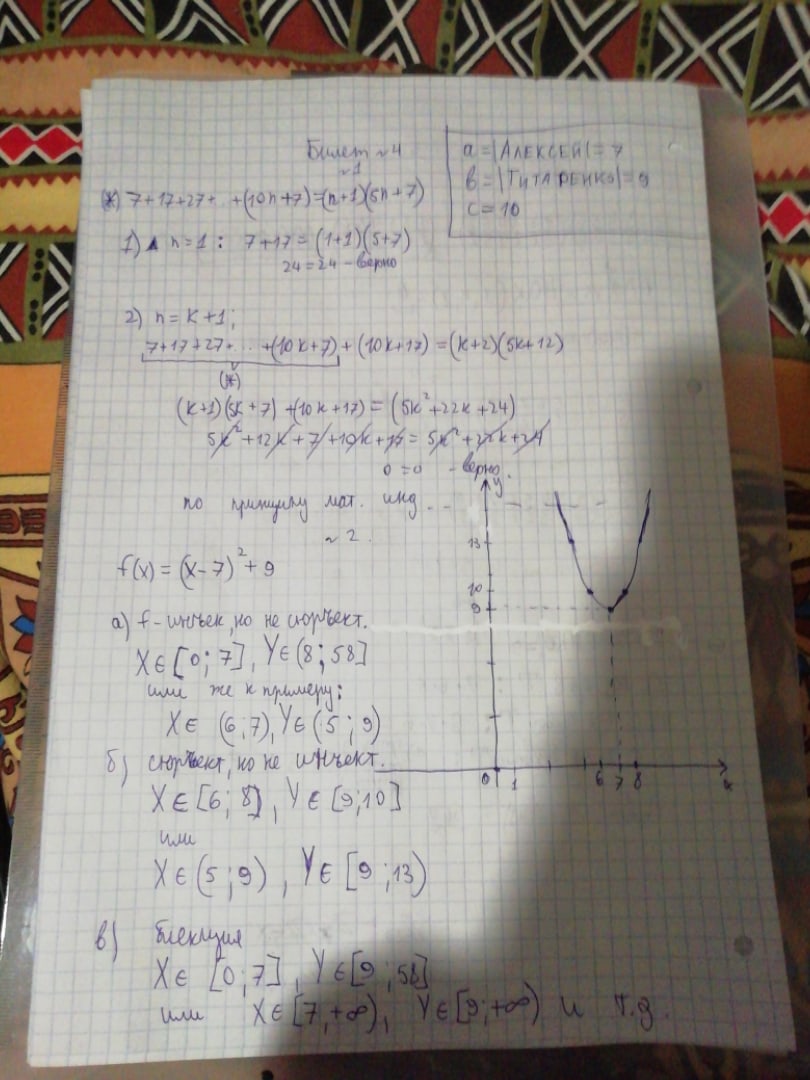 Билет ~4
a = |АЛЕКСЕЙ| = 7
в = |ТИТАРЕНКО| = 9
c = 10
~1
(*) 7+17+27+...+(10n+7)=(n+1)(5n+7)
1) n=1: 7+17=(1+1)(5+7)
24=24 - верно
2) n=k+1;
7+17+27+...+(10k+7)+(10k+17)=(k+2)(5k+12)
(*)
(k+1)(5k+7)+(10k+17)=(5k²+22k+24)
5k²+12k+7+10k+17=5k²+22k+24
0=0 - верно.
по принципу мат. инд.
~2.
f(x)=(x-7)²+9
y
13
10
9
0 1 6 7 8 x
а) f-инъек, но не сюръект.
X∈[0;7], Y∈(8;58]
или же к примеру:
X∈(6;7), Y∈(5;9)
б) сюръект, но не инъект.
X∈[6;8], Y∈[9;10]
или
X∈(5;9), Y∈[9;13)
в) биекция
X∈[0;7], Y∈[9;58]
или X∈[7,+∞), Y∈[9;+∞) и т.д.